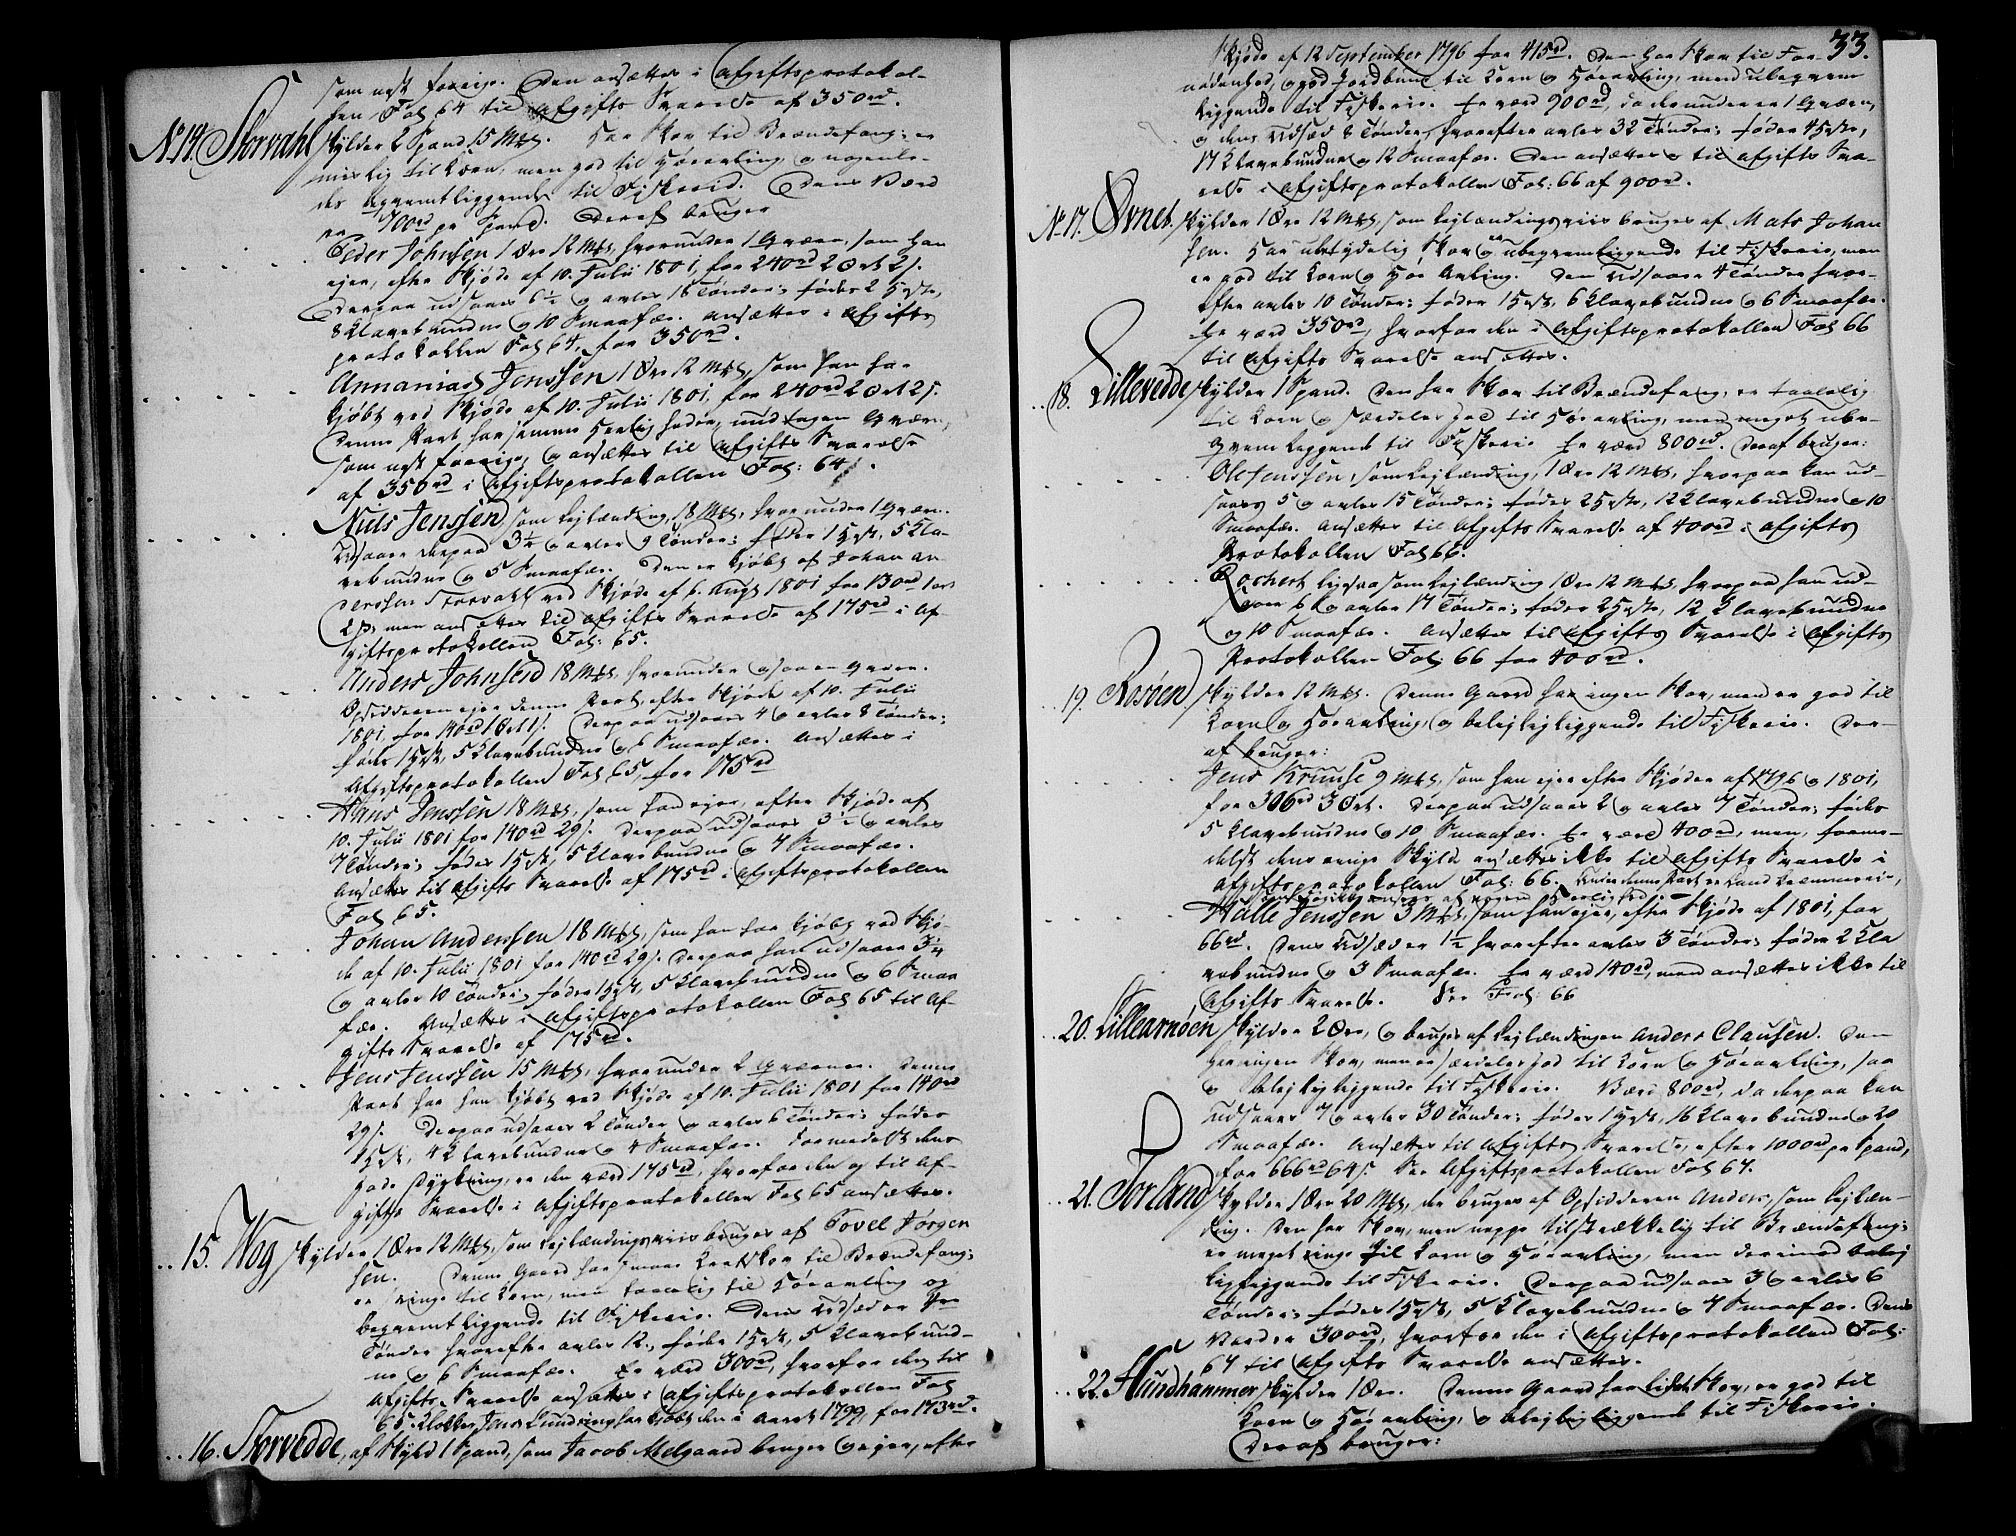 som næst forrige. Den ansættes i Afgiftsprotokol-
len Fol 64 til Afgifts Svarelse af 350rd.
No 14. Storvahl skylder 2 Spand 15 Mkl. Har Skov til Brændefang; er
mislig til Korn, men god til Høeavling og nogenle-
des beqvemt liggende til Fiskerie. Dens Værd
er 700rd pr Spand. Deraf bruger
Peder Johnsen 1 Øre 12 Mkl, hvorunder 1 Qværn, som han
ejer, efter Skjøde af 10. Julii 1801, for 240rd 2 Ort 2s.
Derpaa udsaaes 6½ og avles 18 Tønder; føder 2 Heste,
8 Klavebundne og 10 Smaafæe. Ansættes i Afgifts
protokollen Fol 64, for 350rd.
Annanias Jenssen 1 Øre 12 Mkl, som han ha-
kjøbt ved Skjøde af 10. Julii 1801, for 240rd 2 Ort 2s.
Denne Part har samme Herligheder, und tagen Qværn,
som næst forrige, og ansættes til Afgifts Svarelse
af 350rd i Afgiftsprotokollen Fol: 64.
Niels Jenssen, som Lejlænding, 18 Mkl, hvorunder 1 Qværn.
Udsaaer derpaa 3½ og avler 9 Tønder; føder 1 Hest, 5 Kla-
vebundne og 5 Smaafæe. Den er kjøbt af Johan An
derssen Storvahl ved Skjøde af 6. Augt 1801 for 130rd 1 ort
2s; men ansættes til Afgifts Svarelse af 175rd i Af-
giftsprotokollen Fol: 65.
Anders Johnsen 18 Mkl, hvorunder ogsaa en Qværn.
Opsidderen ejer denne Part, efter Skjøde af 10. Julii
1801, for 140rd 1 Ort 1s. Derpaa udsaaes 4 og avles 8 Tønder;
føder 1 Hest, 5 Klavebundne og 6 Smaafæe. Ansættes i
Afgiftsprotokollen Fol 65, for 175rd
Hans Jenssen 18 Mkl, som han ejer, efter Skjøde af
10. Julii 1801 for 140rd 29s. Derpaa udsaaes 3½ og avles
7 Tønder; føder 1 Hest, 5 Klavebundne og 7 Smaafæe.
Ansættes til Afgifts Svarelse af 175rd i Afgiftsprotokollen
Fol 65.
Johan Anderssen 18 Mkl, som han har kjøbt ved Skjø-
de af 10. Julii 1801 for 140rd 29s. Derpaa han udsaaer 3¼
og avler 10 Tønder; føder 1 Hest, 5 Klavebundne og 6 Smaa
fæe. Ansættes i Afgiftsprotokollen Fol 65 til Af-
gifts Svarelse af 175rd.
Jens Jenssen 15 Mkl, hvorunder 2 Qværner. Denne
Part har han kjøbt ved Skjøde af 10. Julii 1801 for 140rd
29s. Derpaa udsaaes 2 Tønder og avles 6 Tønder; føder
1 Hest, 4 Klavebundne og 4 Smaafæe. Formedelst dens
gode Dyrkning, er den værd 175rd, hvorfor den og til Af-
gifts Svarelse i Afgiftsprotokollen Fol 65 ansættes.
15. Wog skylder 1 Øre 12 Mkl, som Lejlændingsviis bruges af Povel Jørgen
sen. Denne Gaard har Skov til Brændefang;
er ringe til Korn, men taalelig til Høeavling og
beqvemt liggende til Fiskerie. Dens Udsæd er
Tønder hvorefter avles 12, føder 1 Hest, 5 Klavebund-
ne og 6 Smaafæe. Er værd 300rd, hvorfor den til
Afgifts Svarelse ansættes i Afgiftsprotokollen Fol
65. Klokker Jens Lundring har kjøbt den i Aaret 1799, for 173rd.
16. Storvedde, af Skyld 1 Spand, som Jacob Melgaard bruger og ejer, efter
33.
Skjøde af 12 September 1796 for 415rd. Den har Skov til For-
nødenhed, og god Jordbund til Korn og Høeavling, men ubeqvem
liggende til Fiskerie. Er værd 900rd, da derunder er 1 Qværn,
og dens Udsæd 8 Tønder, hvorefter avles 32 Tønder; føder 4 Heste,
17 Klavebundne og 12 Smaafæe. Den ansættes og til Afgifts Sva-
relse i Afgiftsprotokollen Fol: 66 af 900rd.
No 17. Ørnes. skylder 1 Øre 12 Mkl, som Lejlændingsviis bruges af Mats Johan
sen. Har ubetydelig Skov og er ubeqvemliggende til Fiskerie, men
er god til Korn og Høe Avling. Den udsaaes 4 Tønder hvor-
efter avles 10 Tønder; føder 1 Hest, 6 Klavebundne og 6 Smaafæe.
Er værd 350rd, hvorfor den i Afgiftsprotokollen Fol 66
til Afgifts Svarelse ansættes.
18. Lillevedde skylder 1 Spand. Den har Skov til Brændefang, er taalelig
til Korn og særdeles god til Høeavling, men meget ube-
qvem liggende til Fiskerie. Er værd 800rd. Deraf bruger:
Ole Jenssen, som Lejlænding, 1 Øre 12 Mkl, hvorpaa kan ud-
saaes 5 og avles 15 Tønder; føder 2 Heste, 12 Klavebundne og 10
Smaafæe. Ansættes til Afgifts Svarelse af 400rd i Afgifts
Protokollen Fol 66.
Lorhert ligesaa som Lejlænding 1 Øre 12 Mkl, hvorpaa han ud-
saaer 6 og avler 17 Tønder; føder 2 Heste, 12 Klavebundne
og 10 Smaafæe. Ansættes til Afgifts Svarelse i Afgifts
Protokollen Fol 66 for 400rd.
19. Arnøen skylder 12 Mkl. Denne Gaard har ingen Skov, men er god til
Korn og Høeavling, og belejligliggende til Fiskerie. Der-
af bruger:
Jens Krunse 9 Mkl, som han ejer efter Skjøder af 1796 og 1801,
for 306rd 3 Ort. Derpaa udsaaes 2 og avles 7 Tønder; føder
5 Klavebundne og 10 Smaafæe. Er værd 400rd, men, forme-
delst dens ringe Skyld ansættes ikke til Afgifts Svarelse i
Afgiftsprotokollen Fol: 66. Under denne Part er
Halle Jenssen 3 Mkl, som han ejer, efter Skjøde af 1801, for
66rd. Dens Udsæd er 1½ hvorefter avles 3 Tønder; føder 2 Kla
vebundne og 3 Smaafæe. Er værd 140rd, men ansættes ikke til
Afgifts Svarelse. See Fol: 66
20. Lillearnøen skylder 2 Øre, og bruges af Lejlændingen Anders Clausen. Den
har ingen Skov, men er særdeles god til Korn og Høeavling, saa
og belejligliggende til Fiskerie. Værd 800rd, da derpaa kan
udsaaes 7 og avles 30 Tønder; føder 1 Hest, 16 Klavebundne og 20
Smaafæe. Ansættes til Afgifts Svarelse, efter 1000rd pr Spand,
for 666rd 64s. See Afgiftsprotokollen Fol 67.
21. Forland skylder 1 Øre 20 Mkl, der bruges af Opsidderen Anders, som Lejlæn-
ding. Den har Skov, men neppe tilstrækkelig til Brændefang;
er meget ringe til Korn og Høeavling, men derimod belej
ligliggende til Fiskerie. Derpaa udsaaes 3 og avles 6
Tønder; føder 1 Hest, 5 Klavebundne og 7 Smaafæe. Dens
Værd er 300rd, hvorfor den i Afgiftsprotokollen Fol:
67 til Afgifts Svarelse ansættes.
22. Hundhammer skylder 1 Øre. Denne Gaard har lidet Skov, er god til
Korn og Høeavling, og belejligliggende til Fiskerie.
Deraf bruger: